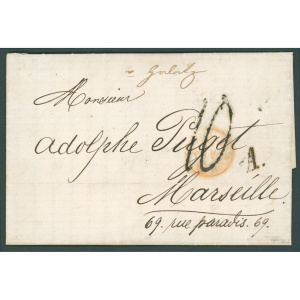 Galatz
Monsieur
Adolphe Puget
10
A.
Marseille.
69. rue paradis. 69.